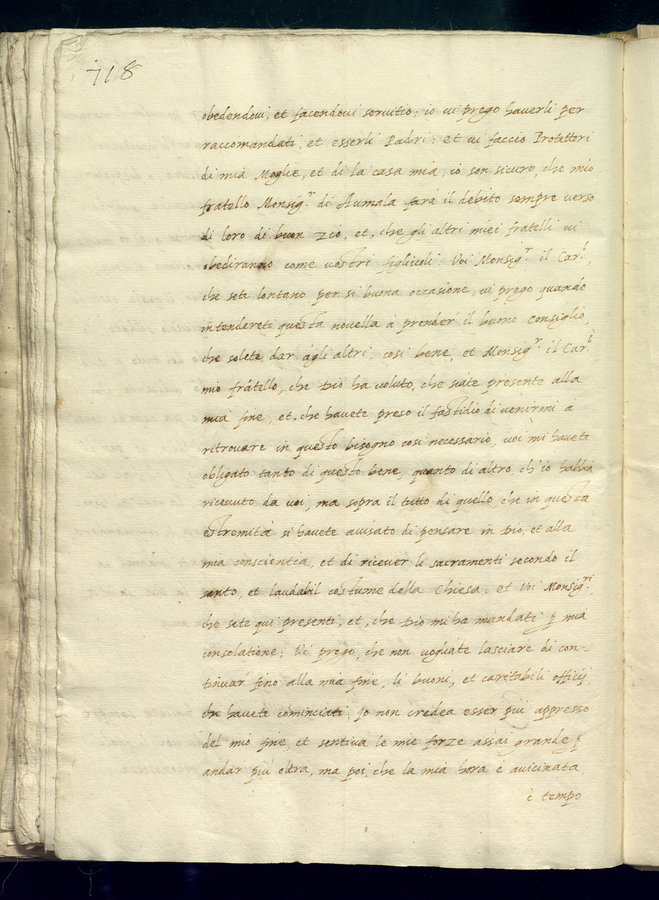 718
obedendovi, et facendovi servitio; io vi prego haverli per
raccomandati, et esserli Padri: et vi faccio Protettori
di mia Moglie, et di la casa mia, io son sicuro, che mio
fratello Monsig.r di Aumala farà il debito sempre verso
di loro di buon zio, et, che gli altri miei fratelli vi
obediranno come vostri figlioli. Voi Monsig.r il Car.l,
che sete lontano per si buona occasione, vi prego quando
intendereti questa novella à prender il buono Consiglio,
che solete dar àgli altri, cosi bene, et Monsig.r il Car.l
mio fratello, che Dio ha voluto, che siate presente alla
mia fine, et, che havete preso il fastidio di venirmi à
ritrovare in questo bisogno cosi necessario, voi mi havete
obligato tanto di questo bene, quanto di altro, ch'io habbia
ricevuto da voi, ma sopra il tutto di quello, che in questa
estremità si havete avisato di pensare in Dio, et alla
mia conscientia, et di ricever li sacramenti secondo il
santo, et laudabil costume della Chiesa: et Voi Monsig.ri
che sete qui presenti, et, che Dio mi ha mandati p mia
consolatione; Vi prego, che non vogliate lasciare di con-
tinuar fino alla mia fine, li buoni, et caritabili officij,
che havete cominciati; Io non credea esser più appresso
del mio fine, et sentiva le mie forze assai grande p
andar più oltra, ma poi, che la mia hora è avicinata
è tempo